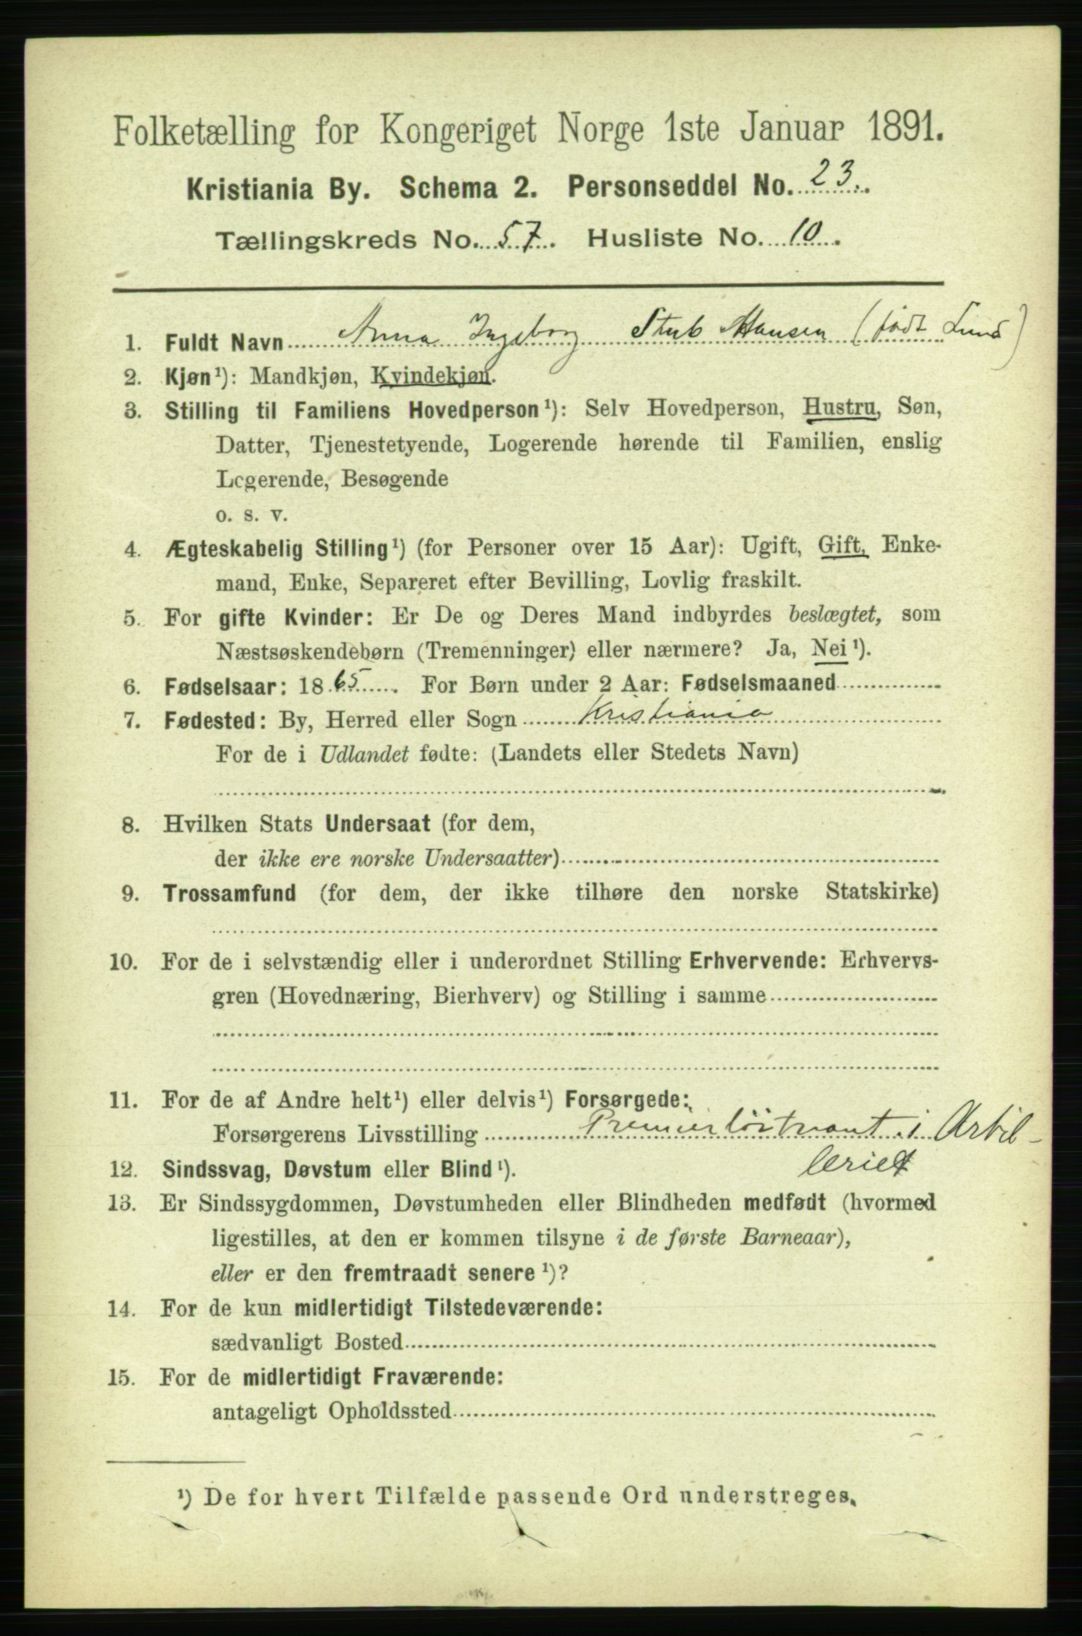 Folketælling for Kongeriget Norge 1ste Januar 1891.
Kristiania By. Schema 2. Personseddel No. 23.
Tællingskreds No. 57. Husliste No. 10.
1. Fuldt Navn Anna Ingeborg Stub Hansen (født Lund)
2. Kjøn¹): Mandkjøn, Kvindekjøn.
3. Stilling til Familiens Hovedperson¹): Selv Hovedperson, Hustru, Søn,
Datter, Tjenestetyende, Logerende hørende til Familien, enslig
Logerende, Besøgende
o. s. v.
4. Ægteskabelig Stilling¹) (for Personer over 15 Aar): Ugift, Gift, Enke-
mand, Enke, Separeret efter Bevilling, Lovlig fraskilt.
5. For gifte Kvinder: Er De og Deres Mand indbyrdes beslægtet, som
Næstsøskendebørn (Tremenninger) eller nærmere? Ja, Nei¹).
6. Fødselsaar: 1865. For Børn under 2 Aar: Fødselsmaaned
7. Fødested: By, Herred eller Sogn Kristiania
For de i Udlandet fødte: (Landets eller Stedets Navn)
8. Hvilken Stats Undersaat (for dem,
der ikke ere norske Undersaatter)
9. Trossamfund (for dem, der ikke tilhøre den norske Statskirke)
10. For de i selvstændig eller i underordnet Stilling Erhvervende: Erhvervs-
gren (Hovednæring, Bierhverv) og Stilling i samme
11. For de af Andre helt¹) eller delvis¹) Forsørgede:
Forsørgerens Livsstilling Premierløitnant i Artil-
leriet
12. Sindssvag, Døvstum eller Blind¹).
13. Er Sindssygdommen, Døvstumheden eller Blindheden medfødt (hvormed
ligestilles, at den er kommen tilsyne i de første Barneaar),
eller er den fremtraadt senere¹)?
14. For de kun midlertidigt Tilstedeværende:
sædvanligt Bosted
15. For de midlertidigt Fraværende:
antageligt Opholdssted
¹) De for hvert Tilfælde passende Ord understreges.